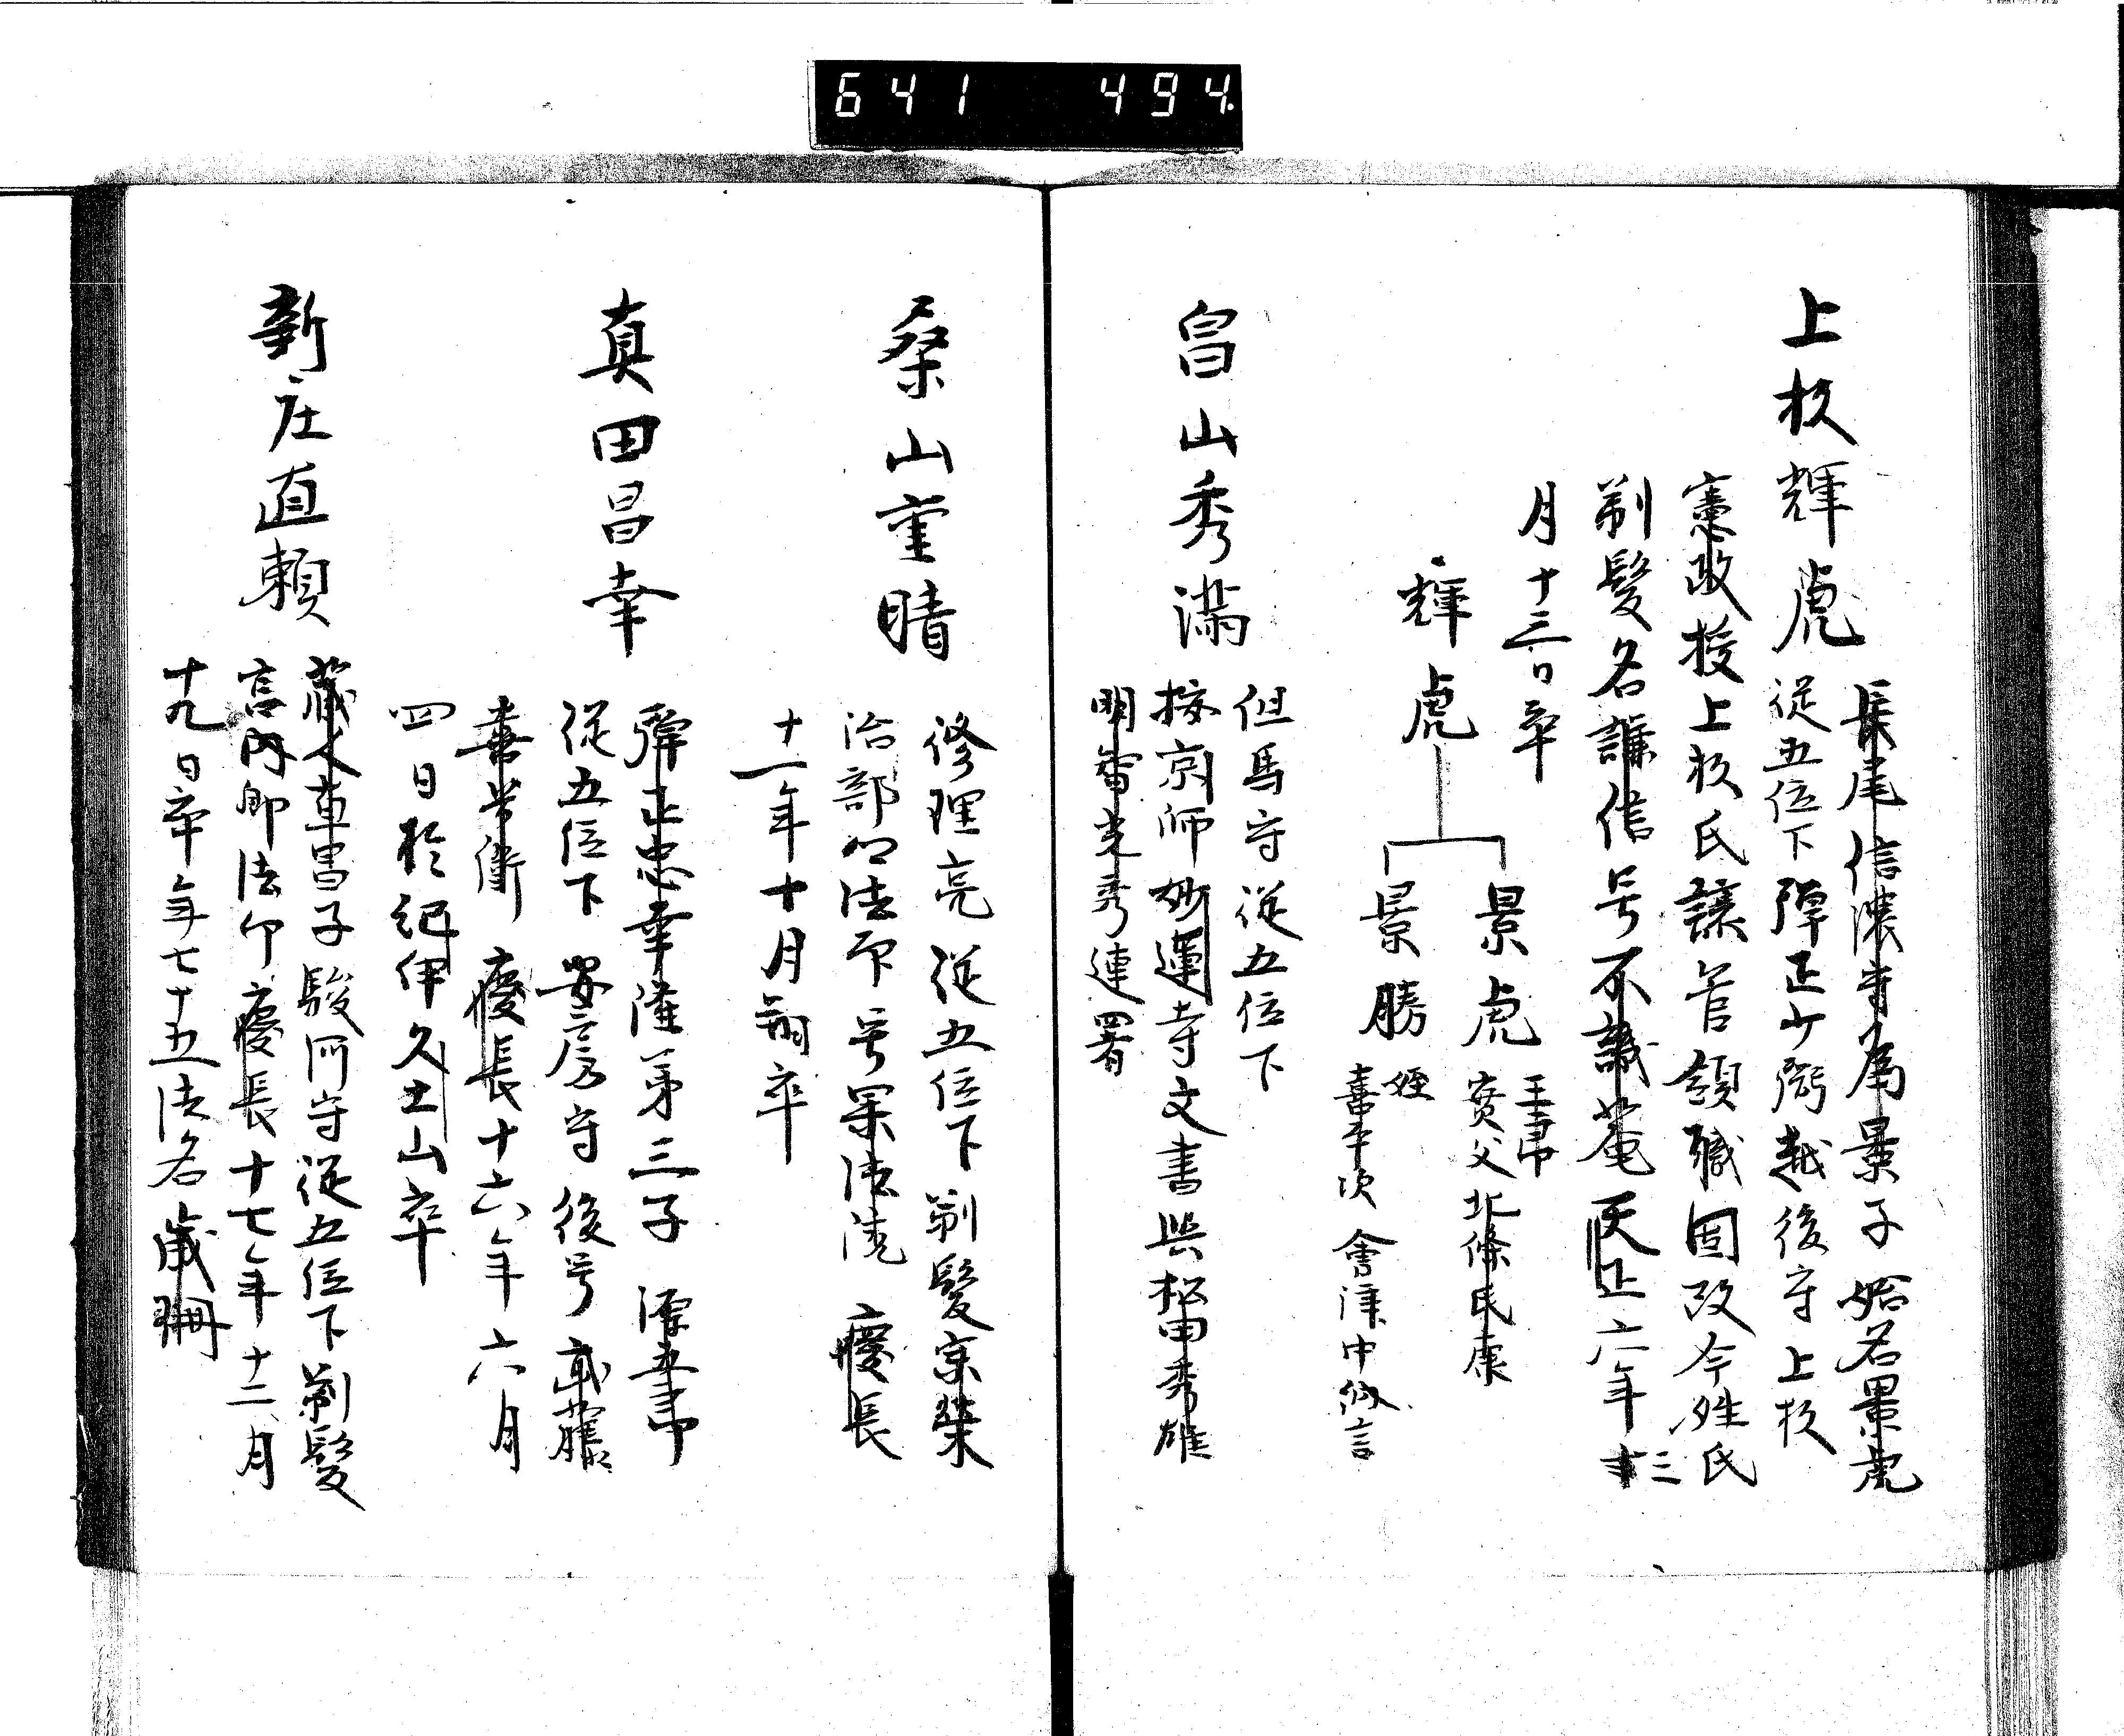 641 494
上杉輝虎
長尾信濃守為景子始名景虎
従五位下弾正少弼越後守上杉
憲政授上杉氏譲管領職因改今姓氏
剃髪名謙信号不識菴天正六年三
月十三日卒
輝虎
景虎
三郎
実父北條氏康
景勝
姪
喜平次 會津中納言
畠山秀満
但馬守従五位下
按京師妙蓮寺文書与松田秀雄
明智光秀連署
桑山重晴
修理亮従五位下剃髪宗栄
治部卿法印号果法院 慶長
十一年十月朔卒
真田昌幸
弾正忠幸隆第三子 源五郎
従五位下安房守後号武藤
喜兵衛 慶長十六年六月
四日於紀伊久土山卒
新庄直頼
蔵人直昌子駿河守従五位下剃髪
宮内卿法印慶長十七年十二月
十九日卒年七十五法名歳珊